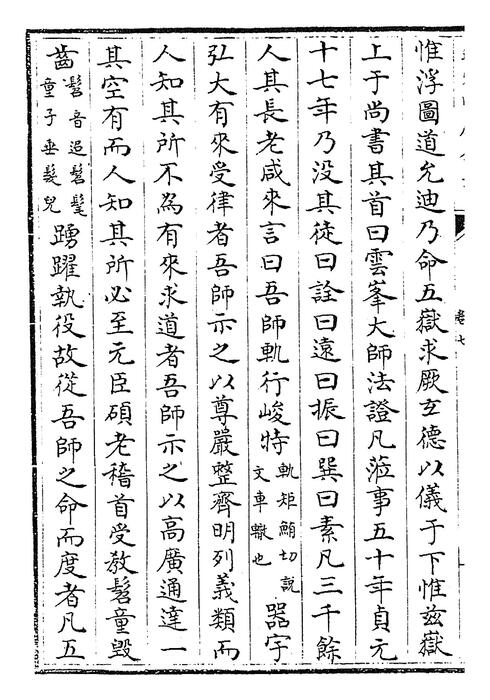 惟浮圖道允迪乃命五嶽求厥玄德以儀于下惟茲嶽
上于尚書其首曰雲峯大師法證凡蒞事五十年貞元
十七年乃没其徒曰詮曰遠曰振曰巽曰素凡三千餘
人其長老咸來言曰吾師軌行峻特軌矩鮪切說文車轍也器宇
弘大有來受律者吾師示之以尊嚴整齊明列義類而
人知其所不為有來求道者吾師示之以高廣通達一
其空有而人知其所必至元臣碩老稽首受教髫童毁
齒髫音迢髫髦童子垂髮皃踴躍執役故從吾師之命而度者凡五
卷七